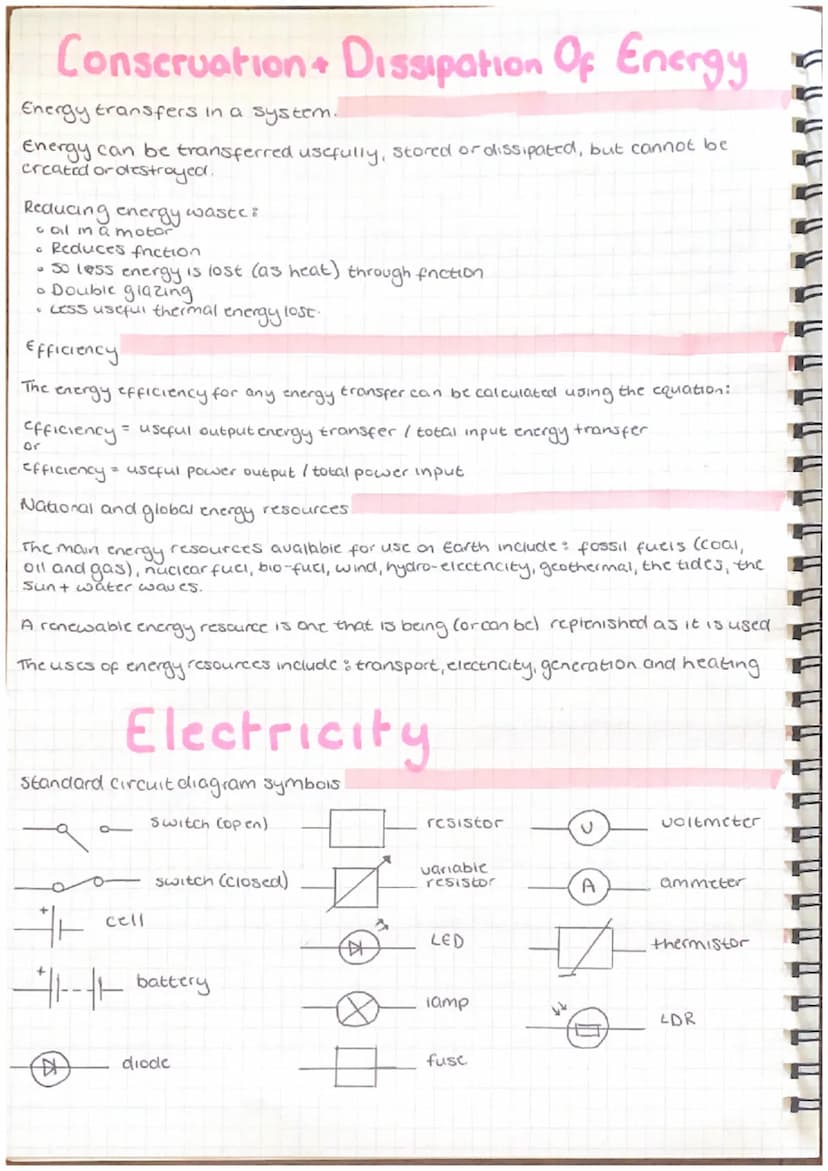 Conservation + Dissipation Of Energy
Energy transfers in a system.
Energy can be transferred usefully, stored or dissipated, but cannot be
created or destroyed.
Reducing energy waste:
• oil in a motor
• Reduces friction
• so less energy is lost (as heat) through friction
• Double glazing
• Less useful thermal energy lost.
Efficiency
The energy efficiency for any energy transfer can be calculated using the equation:
Efficiency = useful output energy transfer / total input energy transfer
or
Efficiency = useful power output / total power input
National and global energy resources
The main energy resources available for use on Earth include: fossil fuels (coal,
oil and gas), nuclear fuel, bio-fuel, wind, hydro-electricity, geothermal, the tides, the
sun + water waves.
A renewable energy resource is one that is being (or can be) replenished as it is used
The uses of energy resources include: transport, electricity, generation and heating
Electricity
Standard circuit diagram symbols
switch (open)
resistor
V
voltmeter
switch (closed)
variable
resistor
A
ammeter
+
cell
LED
thermistor
+
battery
lamp
LDR
diode
fuse